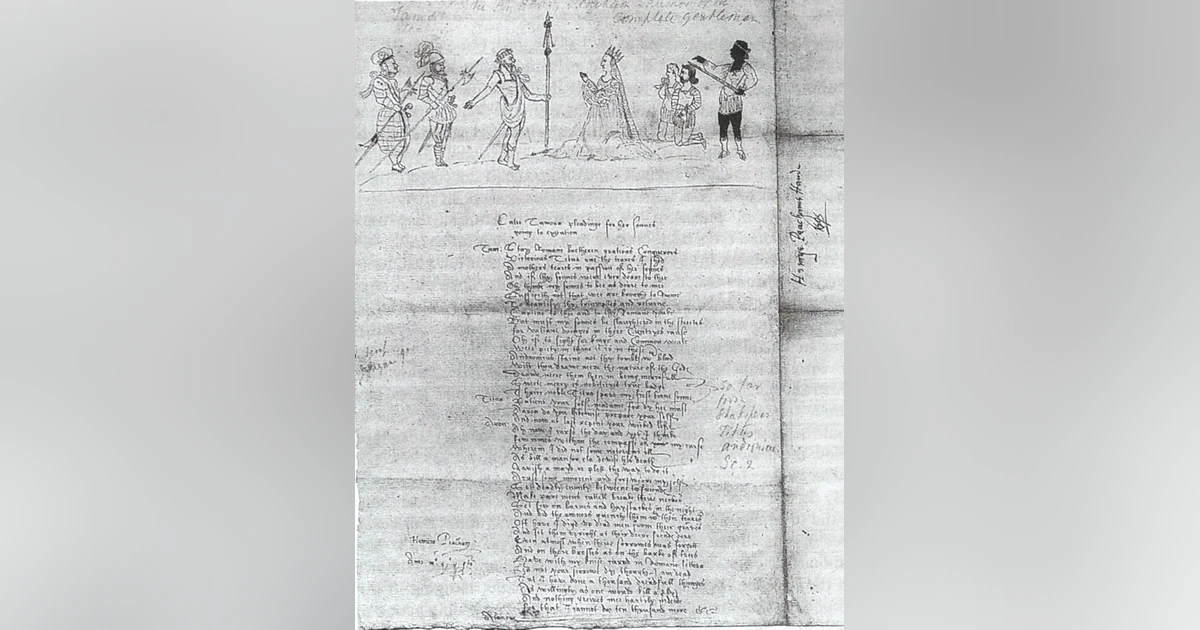 complete Gentleman
Enter Tamora pleadinge for her sonnes
going to execution
Tam: Stay Romane bretheren gratious Conquerors
Victorious Titus rue the teares I shed
A mothers teares in passion of her sonnes
And if thy sonnes were ever deare to thee
Oh thinke my sonnes to bee as deare to mee
Suffizeth not that wee are brought to Roome
To beautify thy triumphes and returne
Captiue to thee and to thy Romane yoake
But must my sonnes be slaughtered in the streetes
for valiant doinges in there Cuntryes cause
Oh if to fight for kinge and Common weale
Were piety in thine it is in these
Andronicus staine not thy tombe with blood
Wilt thou drawe neere the nature of the Godes
Drawe neere them then in being mercifull
Sweete mercy is nobilityes true badge
Thrice noble Titus spare my first borne sonne
Titus: Patient your self madame for dy hee must
Aaron do you likewise prepare your self
And now at last repent your wicked life
Aron: Ah now I curse the day and yet I thinke
few comes within the compasse of my curse
Wherein I did not some notorious ill
As kill a man or els devise his death
Ravish a mayd or plott the way to do it
Acuse some innocent and forsweare myself
Set deadly enmity betweene two freendes
Make poore mens cattell breake theire neckes
Set fire on barnes and haystackes in the night
And bid the owners quench them with their teares
Oft have I digd vp dead men from their graves
And set them vpright at their deere frendes dore
Even almost when theire sorrowes was forgott
And on their brestes as on the barke of trees
Have with my knife carvd in Romane letters
Lett not your sorrowe dy though I am dead
Tut I have done a thousand dreadfull thinges
As willingly as one would kill a fly
And nothing greives mee hartily indeede
But that I cannot doo ten thousand more &c
Alarbus
So far
from
Shakspear
Titus
andronicus
Sc. 2
Henrye Peachams Hande
1595